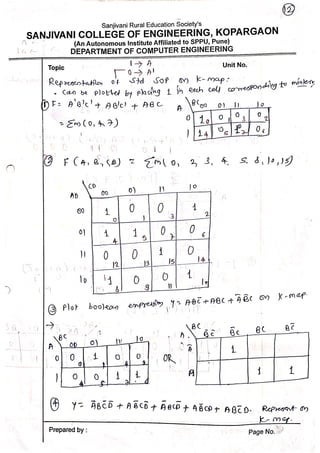 12
Sanjivani Rural Education Society's
SANJIVANI COLLEGE OF ENGINEERING, KOPARGAON
(An Autonomous Institute Affiliated to SPPU, Pune)
DEPARTMENT OF COMPUTER ENGINEERING
Topic 1 → A Unit No.
0 → A'
Representation of Std SOP on K-map:
- Can be plotted by placing 1 in each cell corresponding to minterm
① F = A'B'C' + AB'C' + ABC
= Σm(0,4,7)
A BC 00 01 11 10
0 1 0 0 1 0 3 0 2
1 1 4 0 5 1 7 0 6
② F (A, B, C, D) = Σm( 0, 2, 3, 4, 5, 8, 10, 15)
AB CD 00 01 11 10
00 1 0 0 1 3 1 2
01 1 4 1 5 0 7 0 6
11 0 12 0 13 1 15 0 14
10 1 8 0 9 0 11 1 10
③ Plot boolean expression Y = ABC̄ + ABC + ĀB̄C on K-map
A BC 00 01 11 10
0 0 1 0 0
1 0 0 1 1
OR
A BC B̄C̄ B̄C BC BC̄
Ā 1
A 1 1
④ Represent on
K-map.
Prepared by :
Page No.